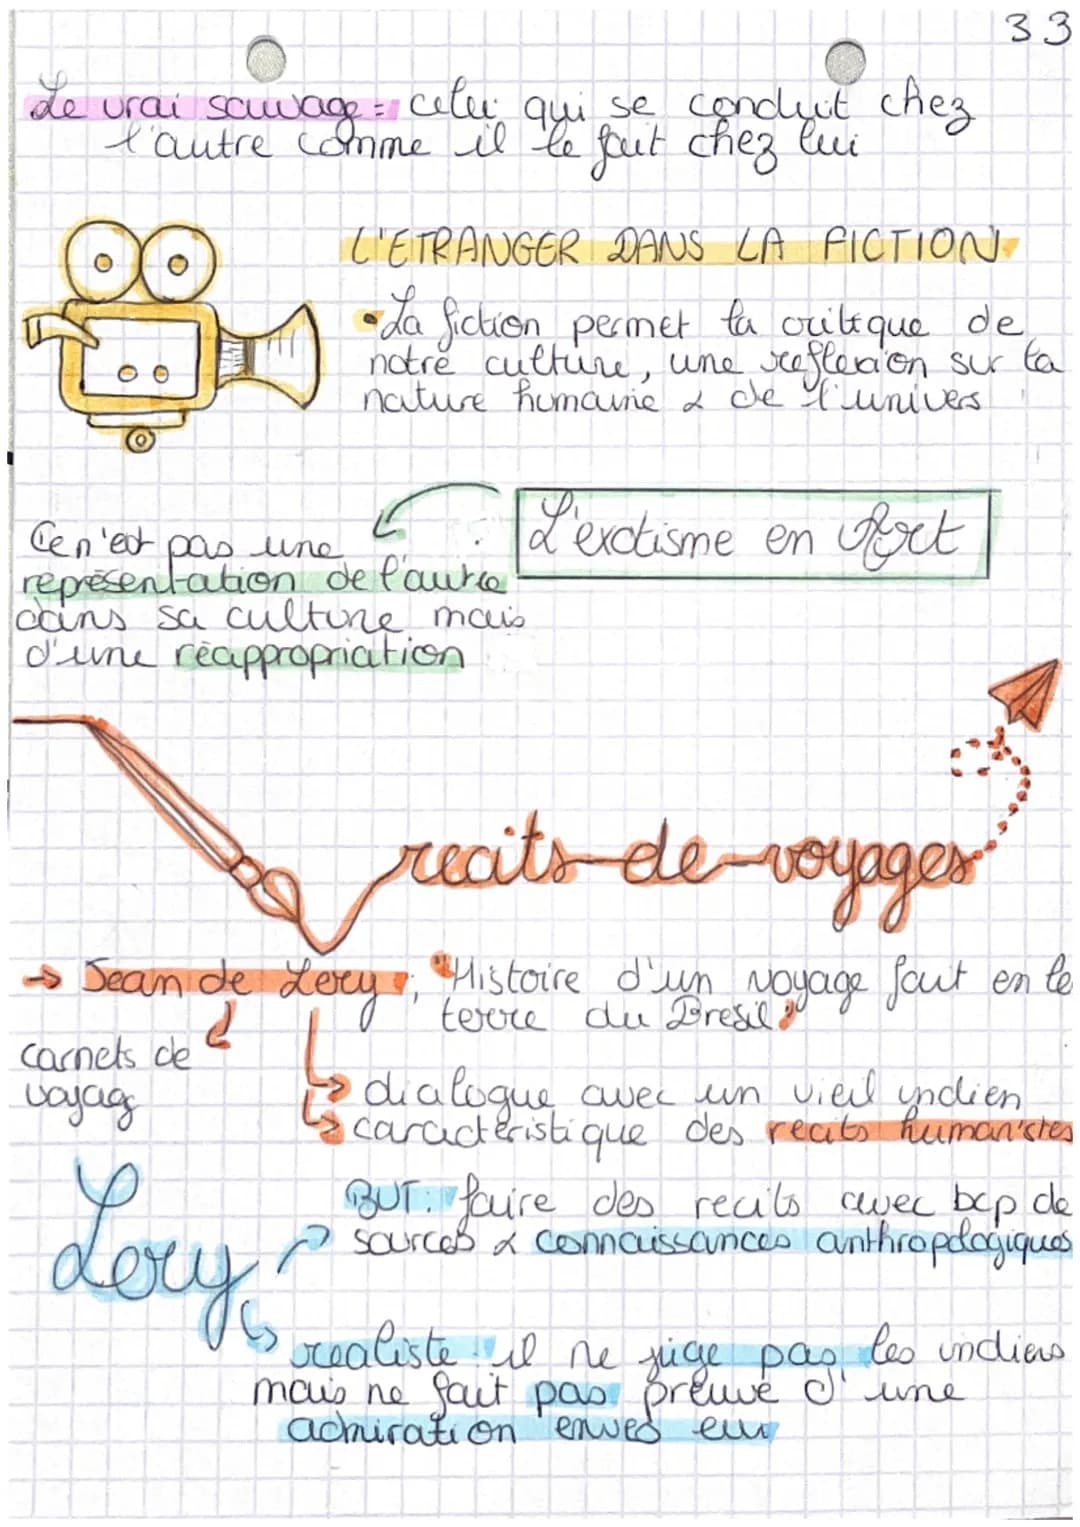 33
Le vrai sauvage = celui qui se conduit chez
l'autre comme il le fait chez lui
L'ETRANGER DANS LA FICTION
• La fiction permet la critique de
notre culture, une reflexion sur la
nature humaine & de l'univers
L'exotisme en Art
Ce n'est pas une
représentation de l'autre
dans sa culture mais
d'une réappropriation
recits-de-voyages
→ Jean de Lery ; "Histoire d'un voyage fait en le
terre du Bresil"
carnets de
voyag
↳ dialogue avec un vieil indien
↳ caractéristique des recits humanistes
Lery
BUT: faire des recits avec bcp de
sources & connaissances anthropologiques
↳ realiste : il ne juge pas les indiens
mais ne fait pas preuve d'une
admiration envers eux